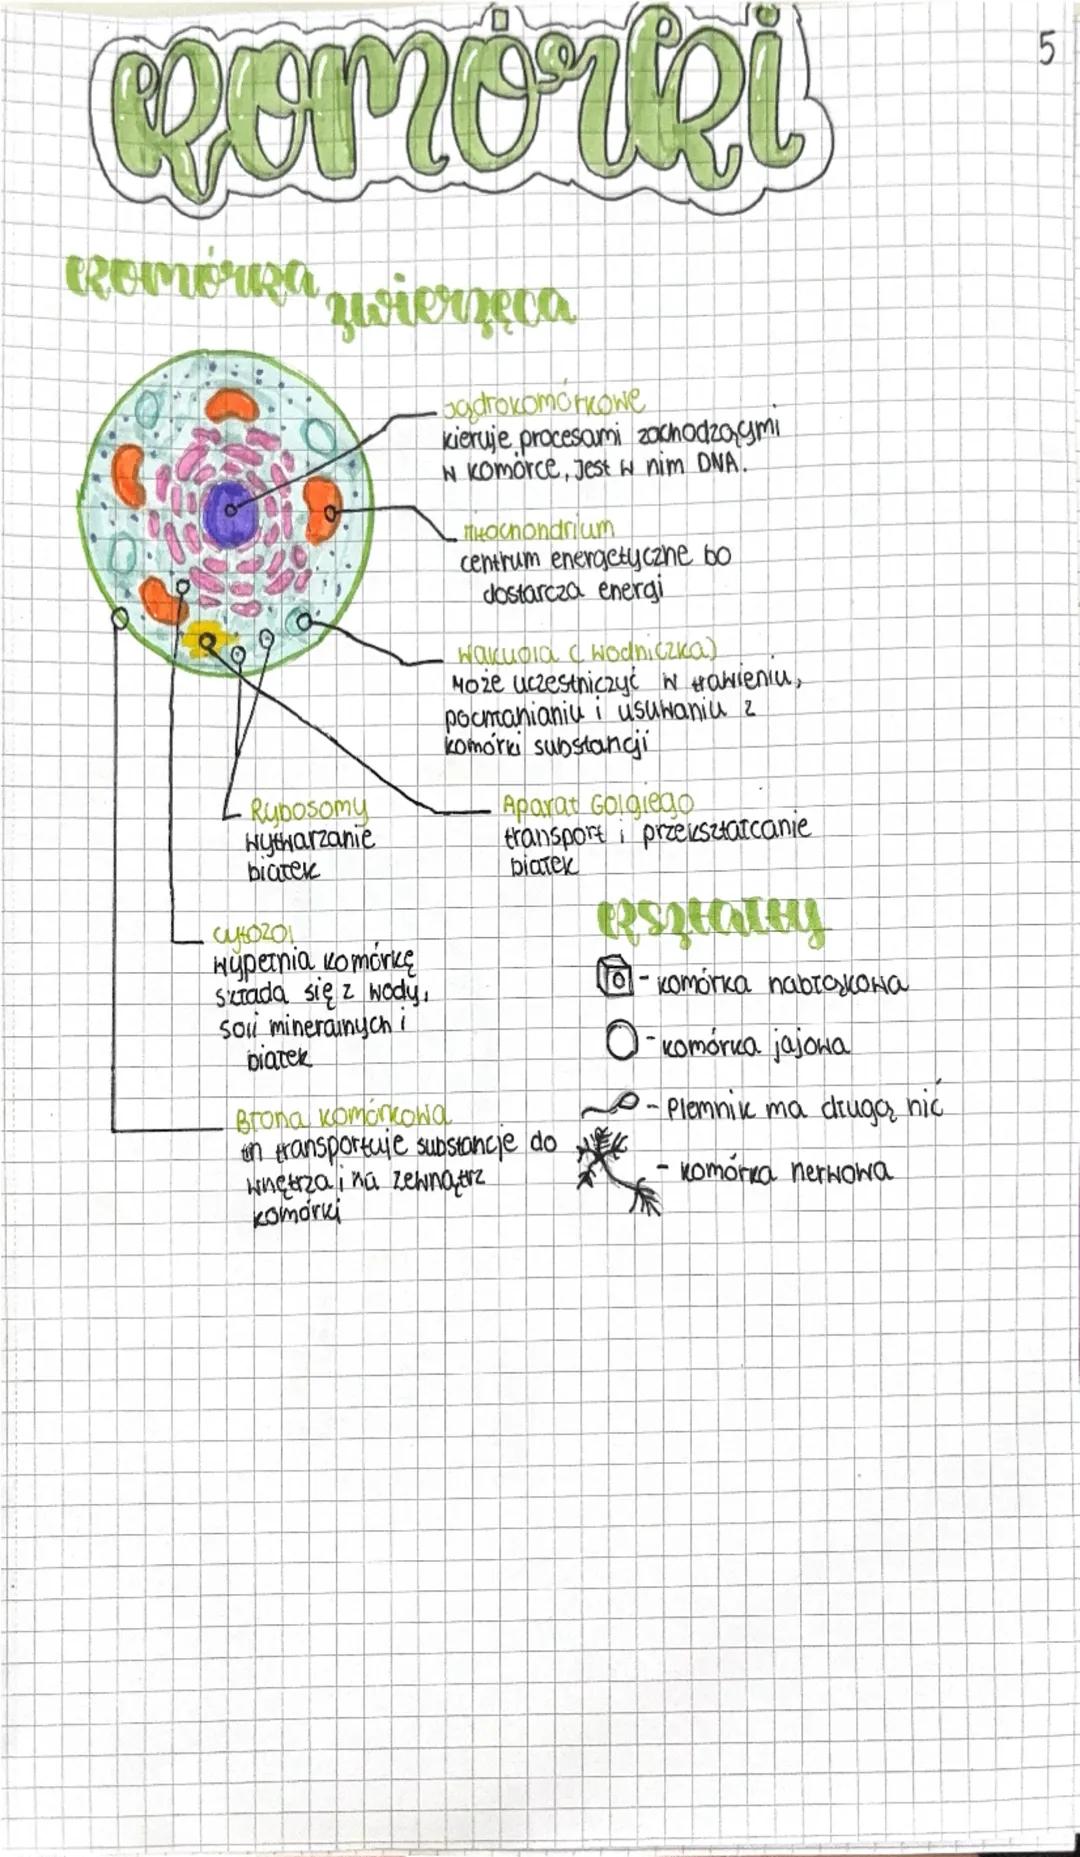 komórki
5
komórka zwierzęca
Jądrokomórkowe
kieruje procesami zachodzącymi
w komórce, Jest w nim DNA.
mitochondrium
centrum energetyczne bo
dostarcza energi
wakuola (wodniczka)
Może uczestniczyć w trawieniu,
pochłanianiu i usuwaniu z
komórki substancji
Rybosomy
wytwarzanie
białek
Aparat Golgiego
transport i przekształcanie
białek
cytozol
wypełnia komórkę
składa się z wody,
soli mineralnych i
białek
Błona komórkowa
transportuje substancje do
wnętrza i na zewnątrz
komórki
kształty
- komórka nabłonkowa
- komórka jajowa
- Plemnik ma długą nić
- komórka nerwowa